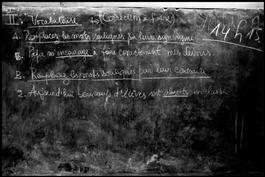 II. Vocabulaire (Correction à faire)
14 h 15
A. Remplacer les mots soulignés par leur synonyme
1. Papa m'encourage à faire correctement mes devoirs
B. Remplacer les mots soulignés par leur contraire
2. Aujourd'hui beaucoup d'élèves sont absents en classe